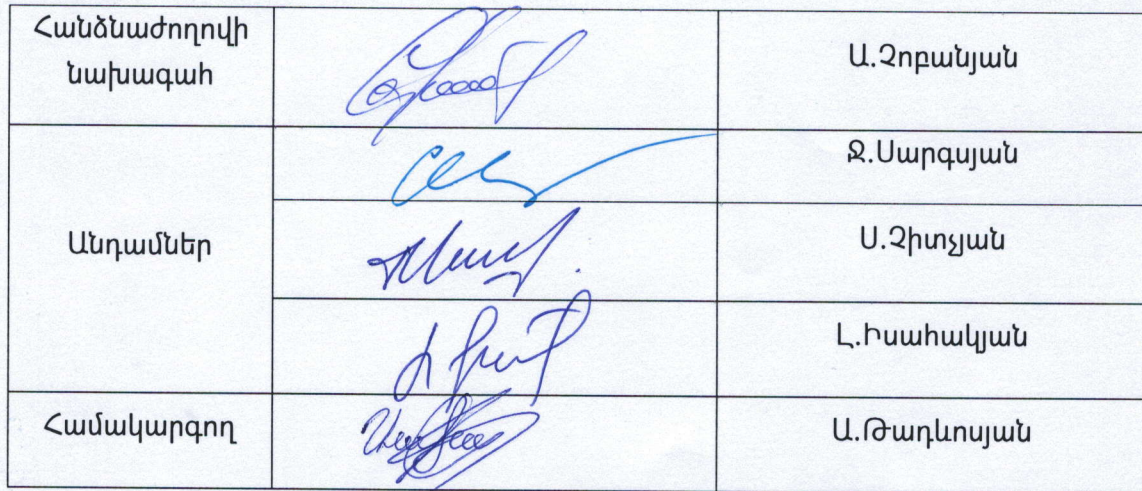 Հանձնաժողովի
նախագահ
Ա.Չոբանյան
Անդամներ
Ջ.Սարգսյան
Ս.Չիտչյան
Լ.Իսահակյան
Համակարգող
Ա.Թադևոսյան